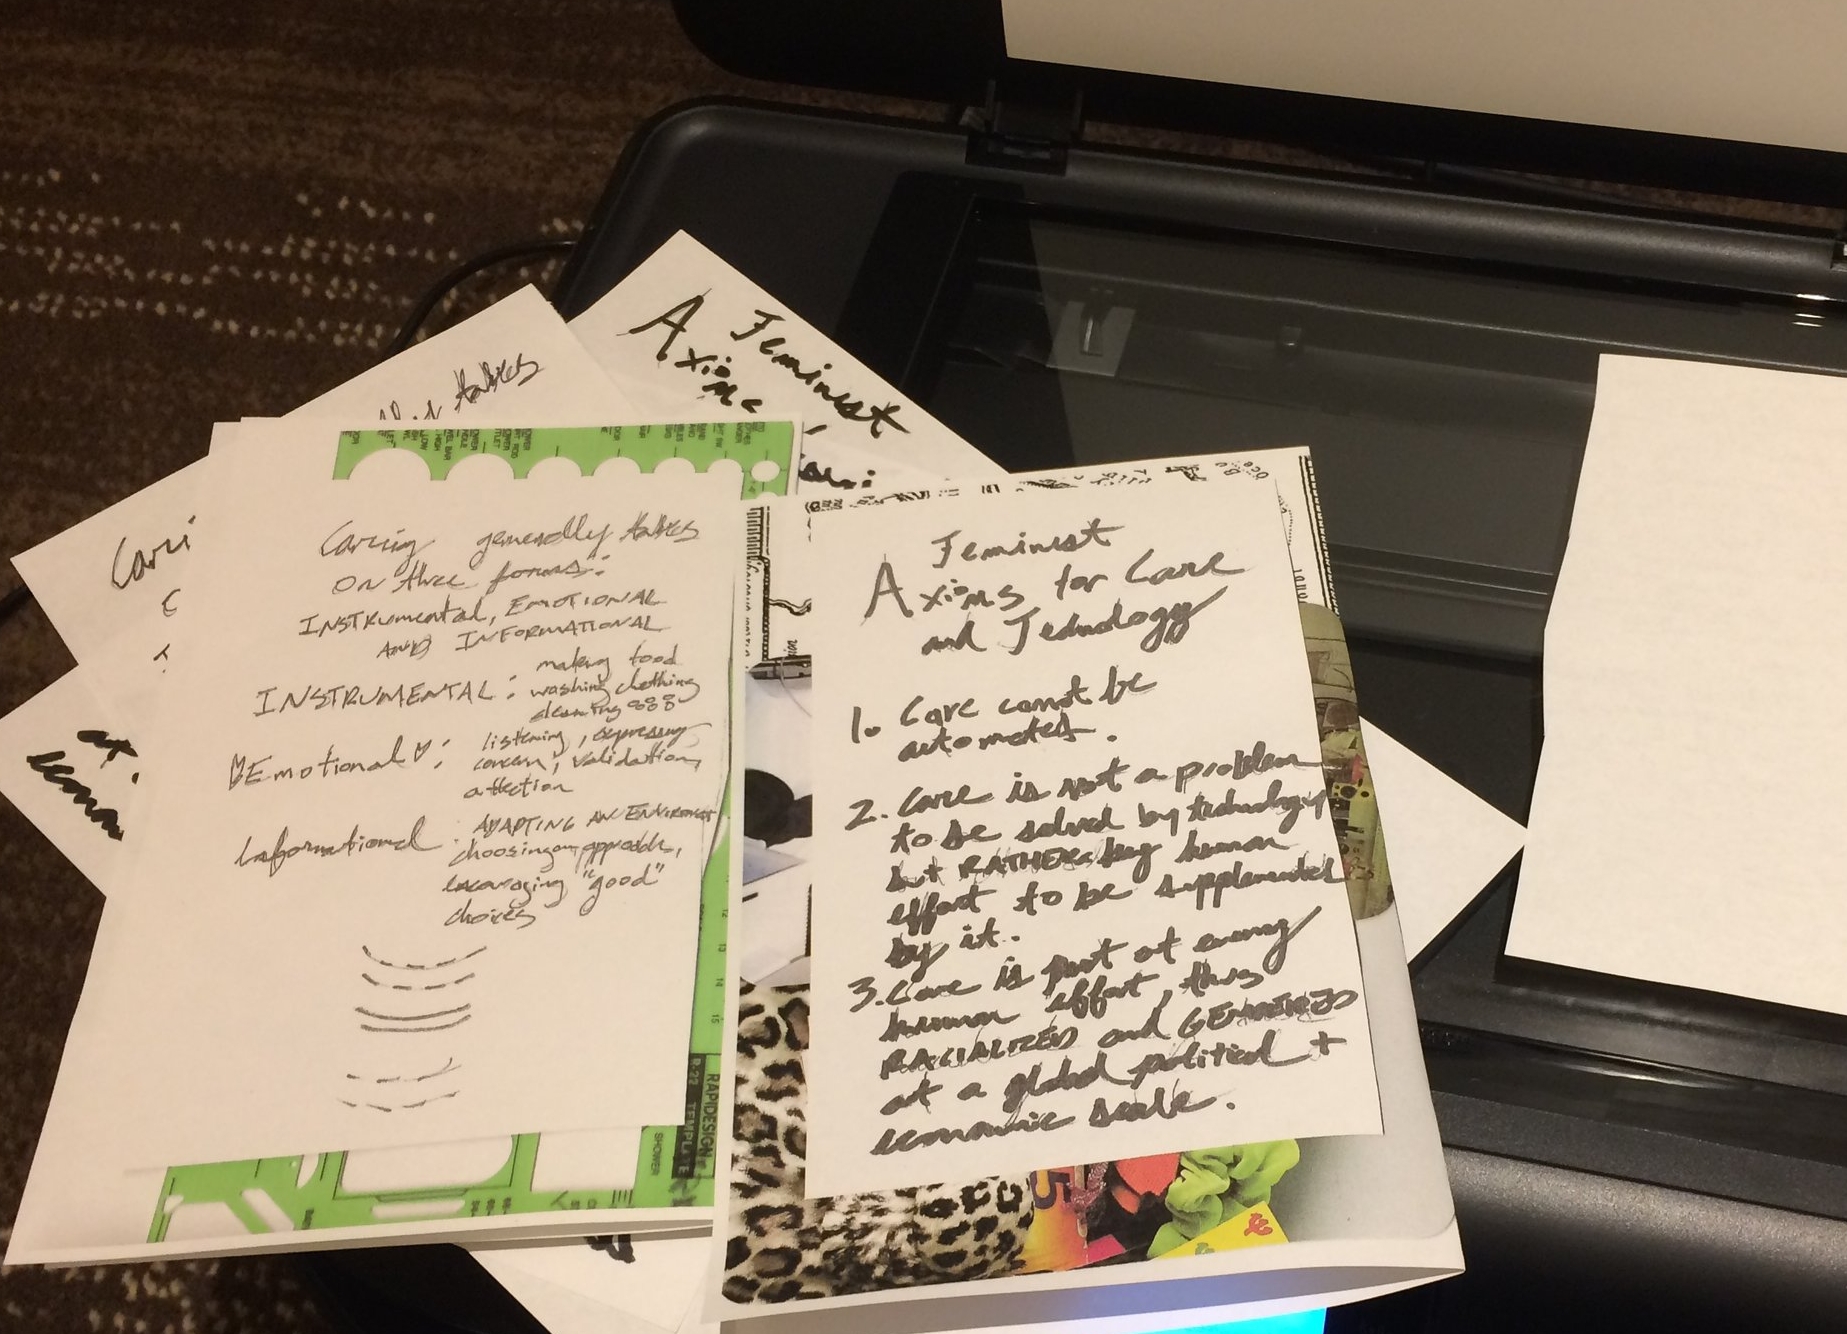 takes
Feminist
Axioms
Cari
at a
econom
Caring generally takes
on three forms:
INSTRUmental, EMOTIONAL
AND INFORMATIONAL
INSTRUMENTAL: making food
washing clothing
cleaning
Emotional: listening, expressing
concern, validation,
affection
Informational: ADAPTING AN ENVIRONMENT
choosing an approach,
encouraging "good"
choices
12
13
14
15
R-22 TEMPLATE
RAPIDESIGN
SHOWER
Feminist
Axioms for Care
and Technology
1. Care cannot be
automated.
2. Care is not a problem
to be solved by technology
but RATHER by human
effort to be supplemented
by it.
3. Care is part of every
human effort, thus
RACIALIZED and GENDERED
at a global political +
economic scale.